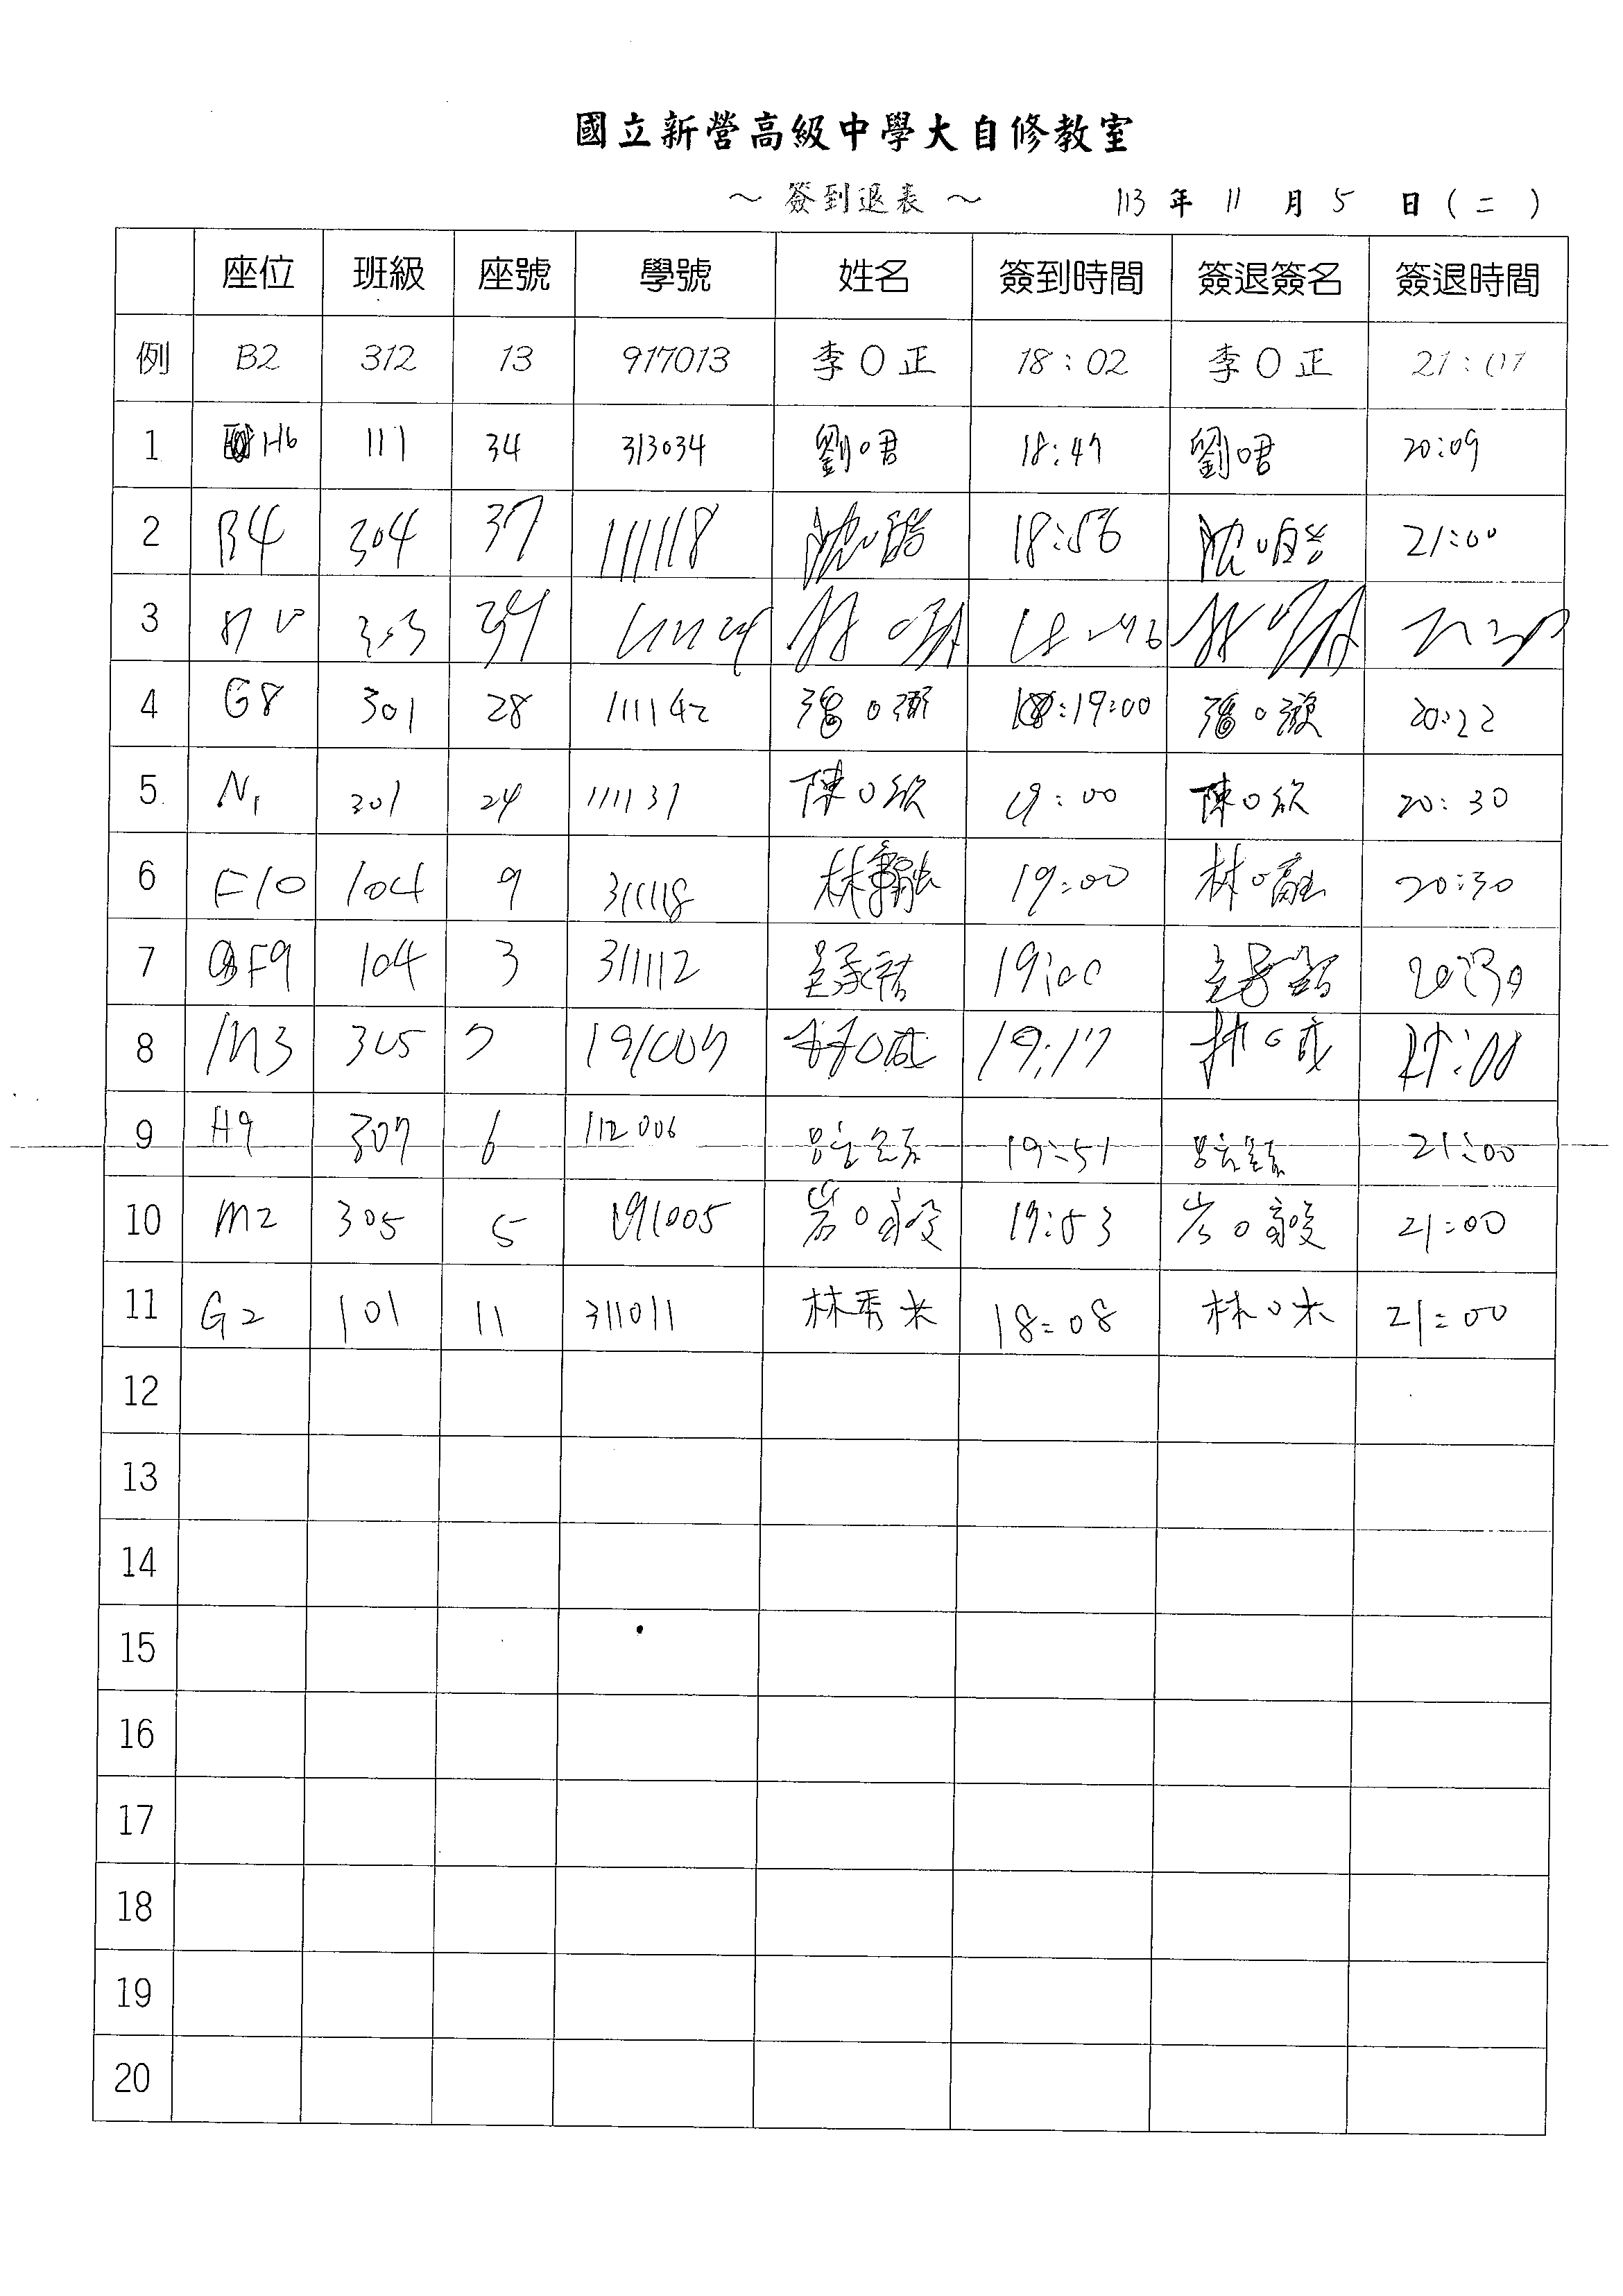 國立新營高級中學大自修教室
～ 簽到退表 ～ 113 年 11 月 5 日 ( 二 )
座位 班級 座號 學號 姓名 簽到時間 簽退簽名 簽退時間
例 B2 312 13 917013 李O正 18:02 李O正 21:01
1 H6 111 34 313034 劉O君 18:47 劉O君 20:09
2 B4 304 37 111118 沈O 18:56 沈O 21:00
3 303
4 G8 301 28 111142 O 19:00 O 20:22
5 N1 301 24 111131 陳O欣 19:00 陳O欣 20:30
6 F10 104 9 311118 林 19:00 林O 20:30
7 F9 104 3 311112 吳承祐 19:00 20:30
8 M3 305 7 191007 林O成 19:17 林O成 21:00
9 H9 307 6 112006 19:51 21:00
10 M2 305 5 191005 岩O毅 19:53 岩O毅 21:00
11 G2 101 11 311011 林秀米 18:08 林O米 21:00
12
13
14
15
16
17
18
19
20